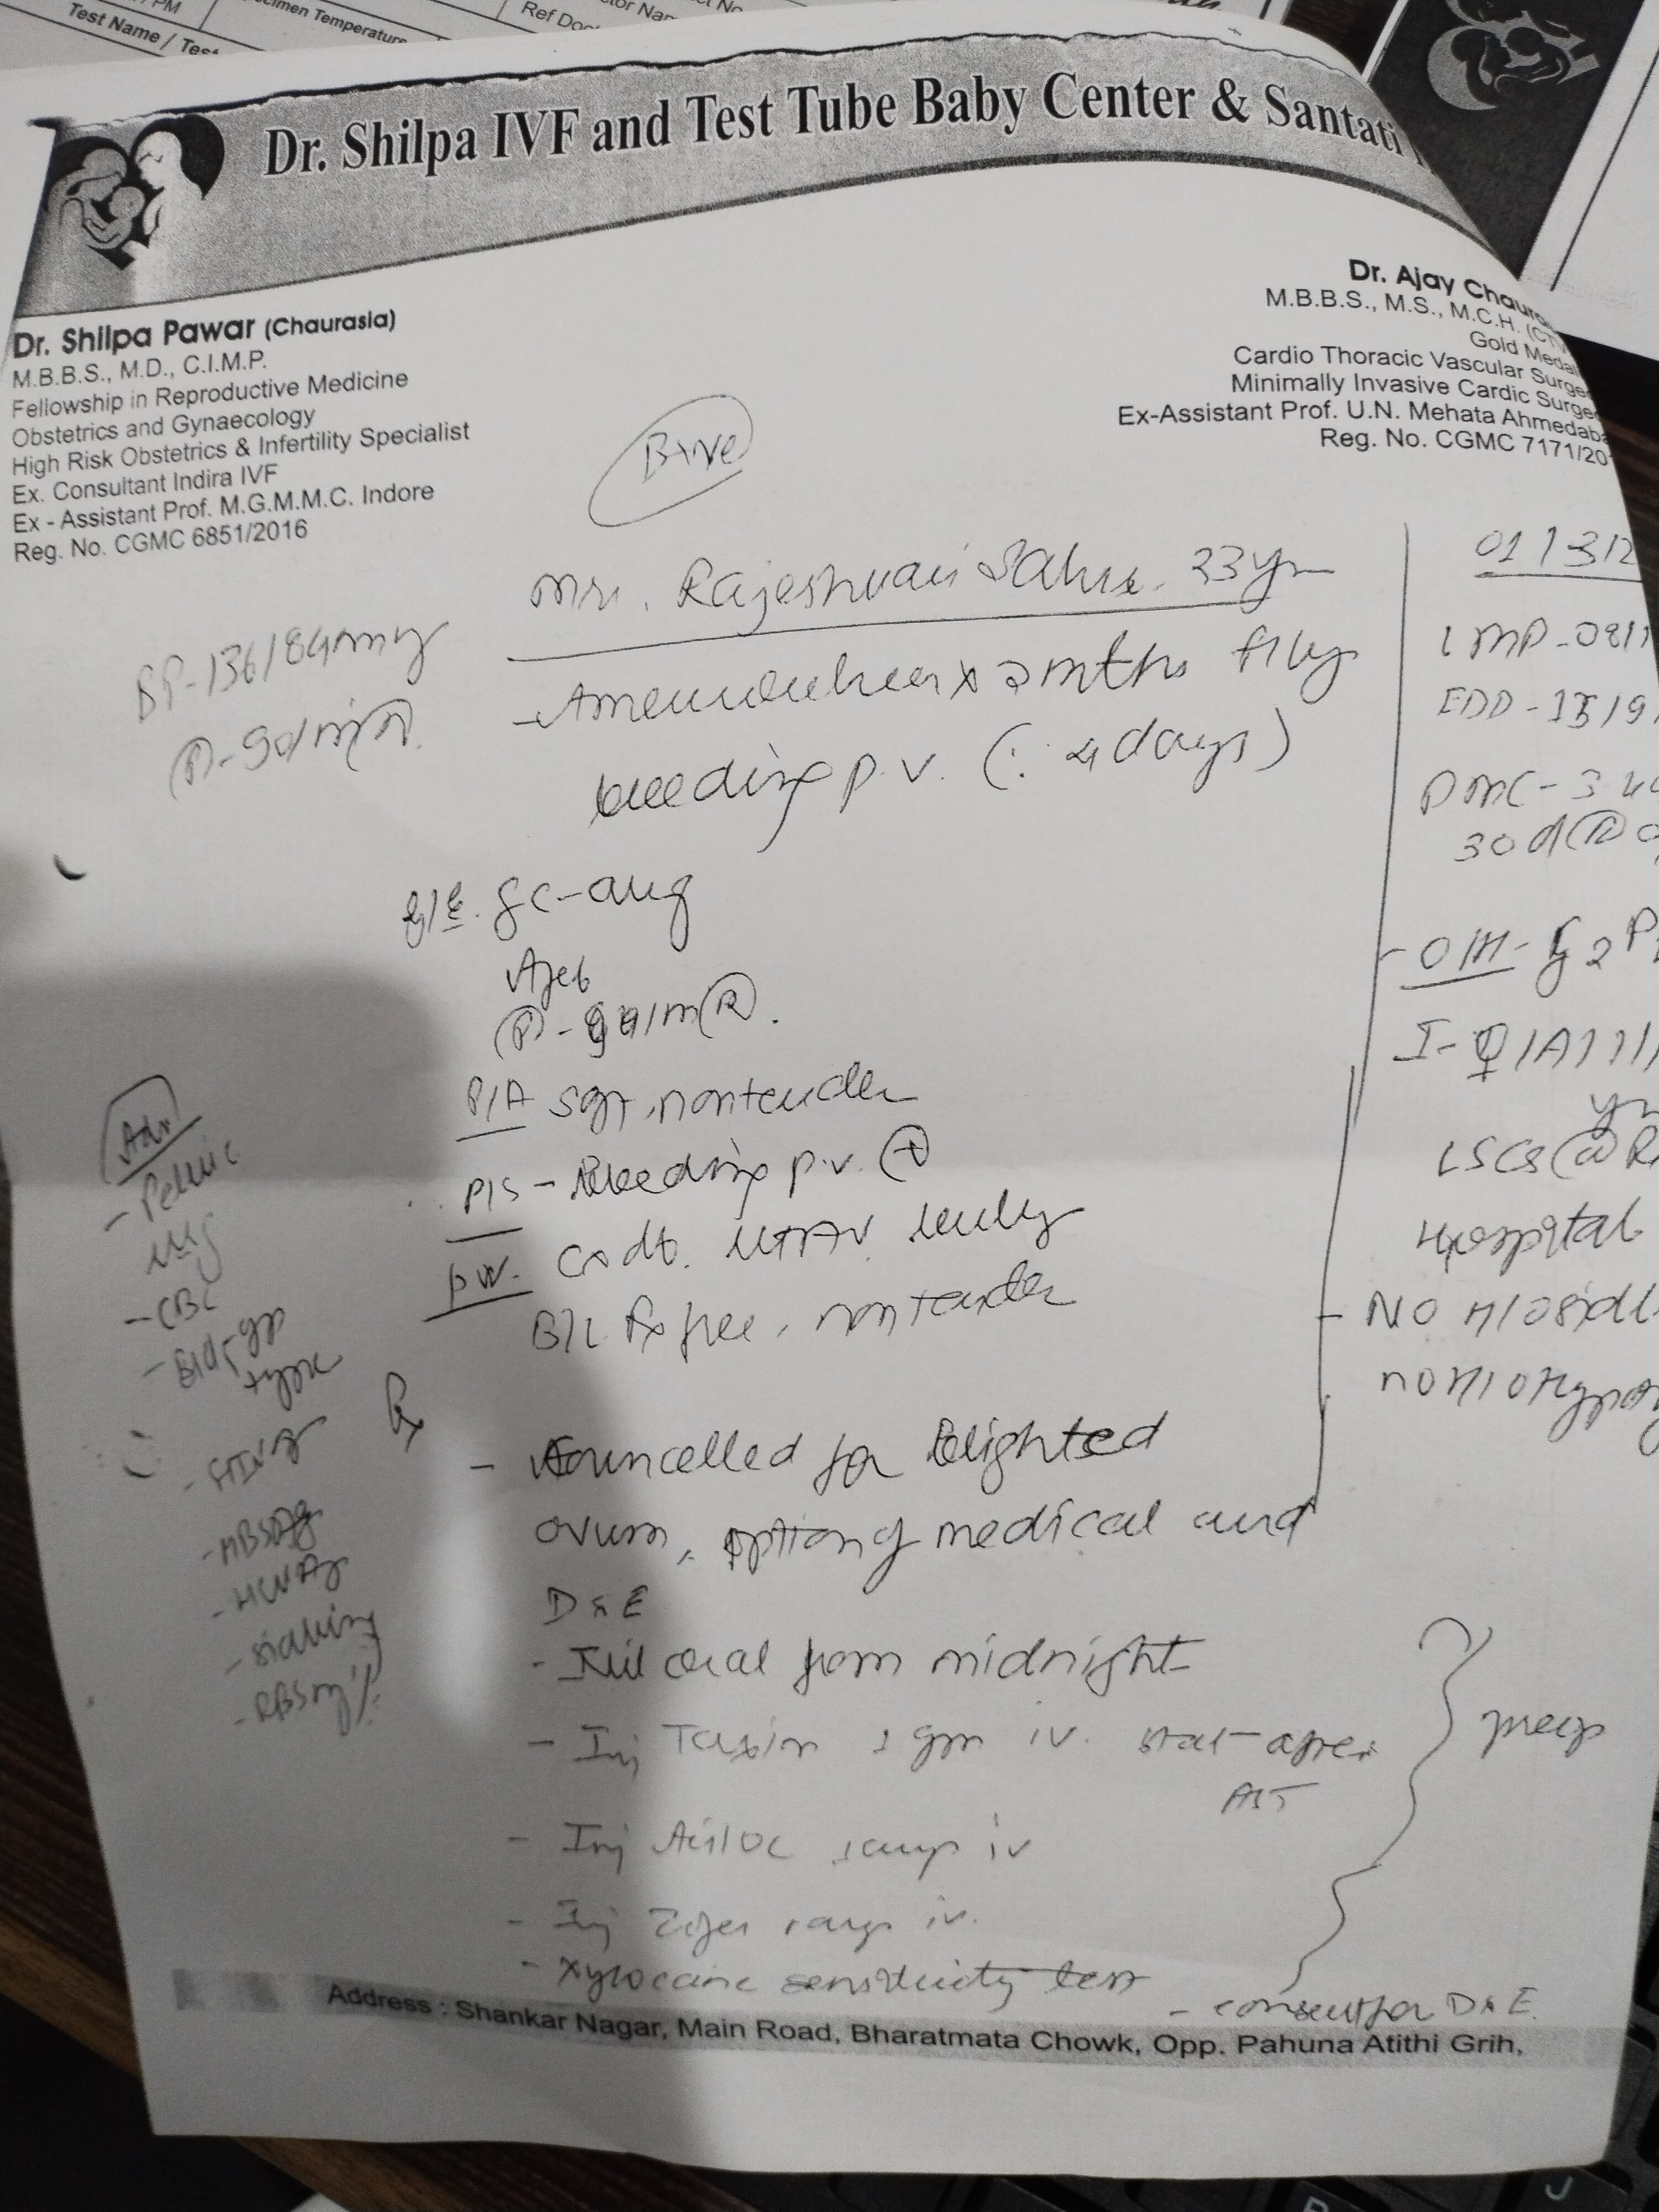 PM
Test Name / Test
Specimen Temperature
Ref Doc
Dr. Shilpa IVF and Test Tube Baby Center & Santati
Dr. Shilpa Pawar (Chaurasia)
M.B.B.S., M.D., C.I.M.P.
Fellowship in Reproductive Medicine
Obstetrics and Gynaecology
High Risk Obstetrics & Infertility Specialist
Ex. Consultant Indira IVF
Ex - Assistant Prof. M.G.M.M.C. Indore
Reg. No. CGMC 6851/2016
Dr. Ajay Chaura
M.B.B.S., M.S., M.C.H. (CTV
Gold Medal
Cardio Thoracic Vascular Surge
Minimally Invasive Cardic Surge
Ex-Assistant Prof. U.N. Mehata Ahmedaba
Reg. No. CGMC 7171/20
B+ve
Mrs. Rajeshwari Sahu. 33 yrs
BP-136/84mmHg
P-90/min
- Amenorrhoea x 2 mths f/by
bleeding p.v. (: 4 days)
G/E. GC-avg
Afeb
P/A soft, nontender
P/S - Bleeding p.v. +
B/L Fx free, nontender
Adv
- Pelvic
USG
- CBC
- Bld gp
type
- HIV
- HBSAg
- HCV
- Sickling
- RBS
Rx
- Councelled for Blighted
ovum, option of medical and
D & E
- Nil oral from midnight
- Inj Taxim 1 gm iv. stat after
AST
- Inj Aciloc 1 amp iv
- Inj Zofer 1 amp iv.
- Xylocaine sensitivity test
- consent for D & E.
prep
01/3/2
LMP-08/1
EDD-15/9
PMC-3
30d
- O/H- G2 P
I- ♀
LSCS @ R
Hospital
- NO H/O
no H/O Hypo
Address : Shankar Nagar, Main Road, Bharatmata Chowk, Opp. Pahuna Atithi Grih,
J